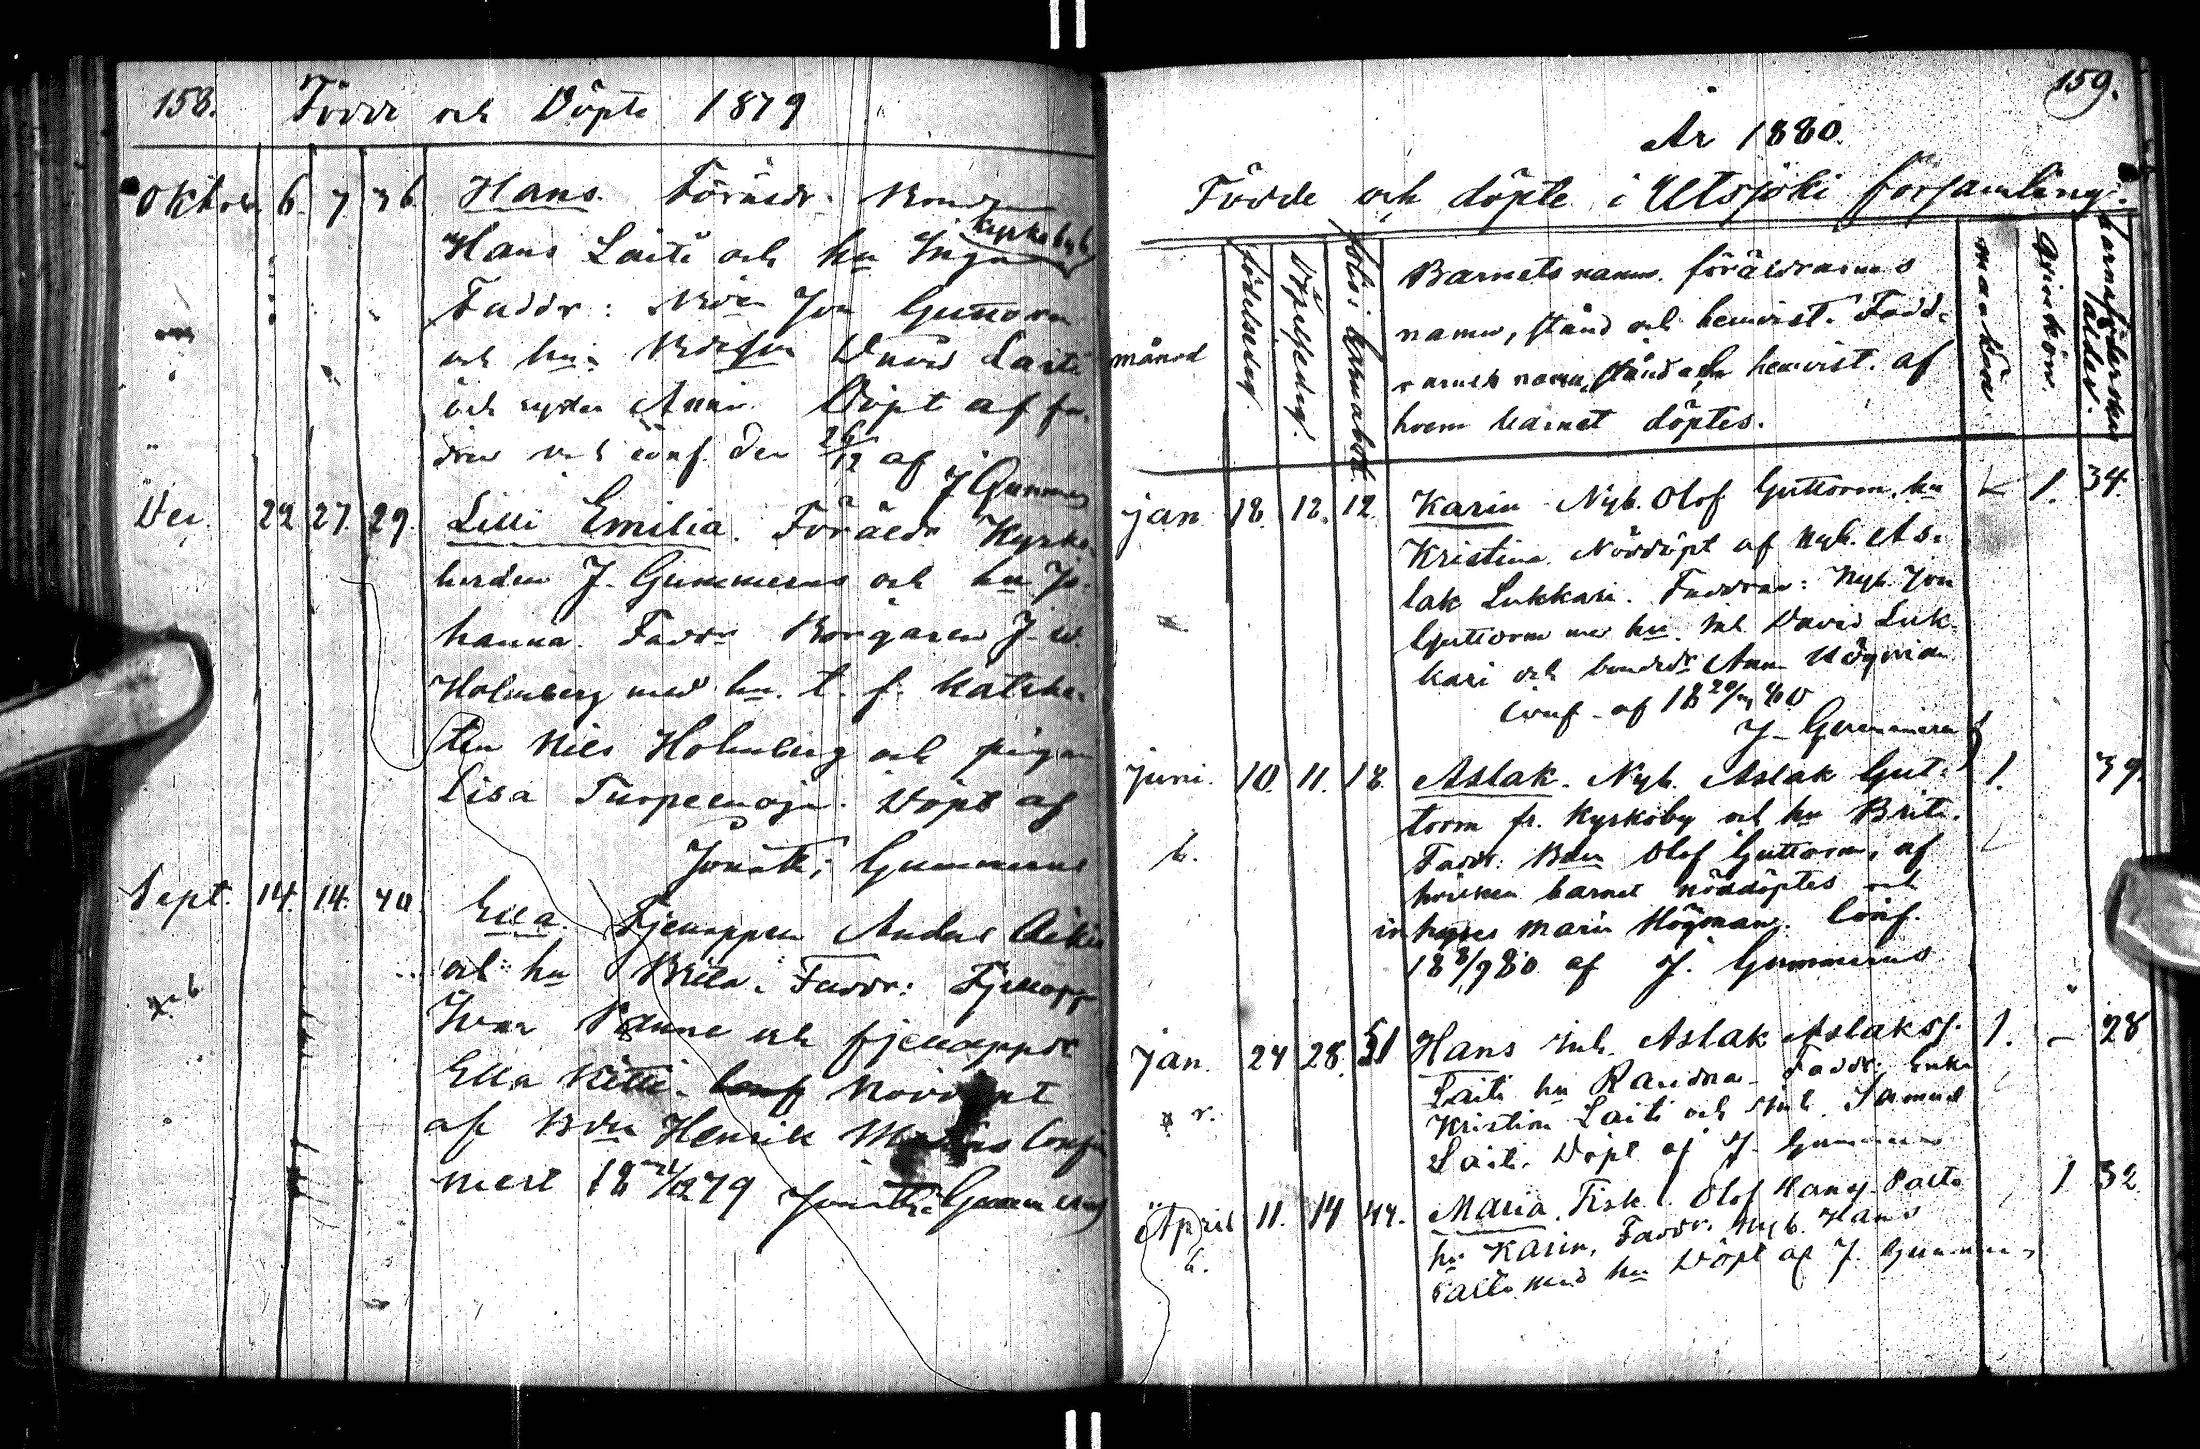 158. Födde och Döpte 1879
Oktober 6. 7 36 Hans. Föräldr. Bonden
Kyrkoby
Hans Laiti och hu Inga
Faddr: Bden Jon Guttorm
och hu. Bdeson David Laiti
och syster Anna. Döpt af fa-
dren och conf. den 26/12 af
J Gummerus
Dec. 22 27 29. Lilli Emilia. Föräldr Kyrko-
herden J. Gummerus och hu Jo-
hanna. Faddr Borgaren J. W.
Holmberg med hu. t. f. Kateke-
ten Nils Holmberg och pigan
Lisa Turpeenoja. Döpt af
Jonath. Gummerus
Sept. 14. 14. 40 Ella. Fjellappen Anders
och hu Brita. Faddr: Fjellapp
Ivar och fjellappdr
Ella Kitti. Conf Nöddöpt
af Bden Henrik Confir
merat 1879 Jonath. Gummerus
159.
År 1880.
Födde och döpte i Utsjoki församling.
månad
födelsedag.
Döpelsedag.
folio i barnabok
Barnets namn. föräldrarnas
namn, stånd och hemvist. Fadd-
rarnes namn, stånd och hemvist. af
hvem barnet döptes.
mankön
Qvinkön.
barnaföderskans ålder.
Jan. 12. 12. 12 Karin Nyb. Olof Guttorm, hu 1. 34.
Kristina. Nöddöpt af Nyb. As-
lak Lukkari. Faddrar: Nyb. Jon
Guttorm med hu. Inh David Luk-
kari och bondedr Anna Högman
Conf. af
J. Gummerus
Juni. 10. 11. 18. Aslak. Nyb. Aslak Gut- 1. 39.
torm fr. Kyrkoby och hu Brita.
b. Faddr: Bden Olof Guttorm, af
hvilken barnet nöddöptes och
inhyses Maria Högman. Conf.
18 8/9 80 af J. Gummerus
Jan. 24 28. 51 Hans Inh. Aslak Aslakss. 1. – 28
Laiti hu Raudna. Faddr: Enka
r. Kristina Laiti och Inh. Samuel
Laiti. Döpt af J. Gummerus
April 11. 14 44. Maria. Fisk. Olof Hanss. Palto 1 32
b. hu Karin, Faddr. Nyb. Hans
Palto med hu Döpt af J. Gummerus